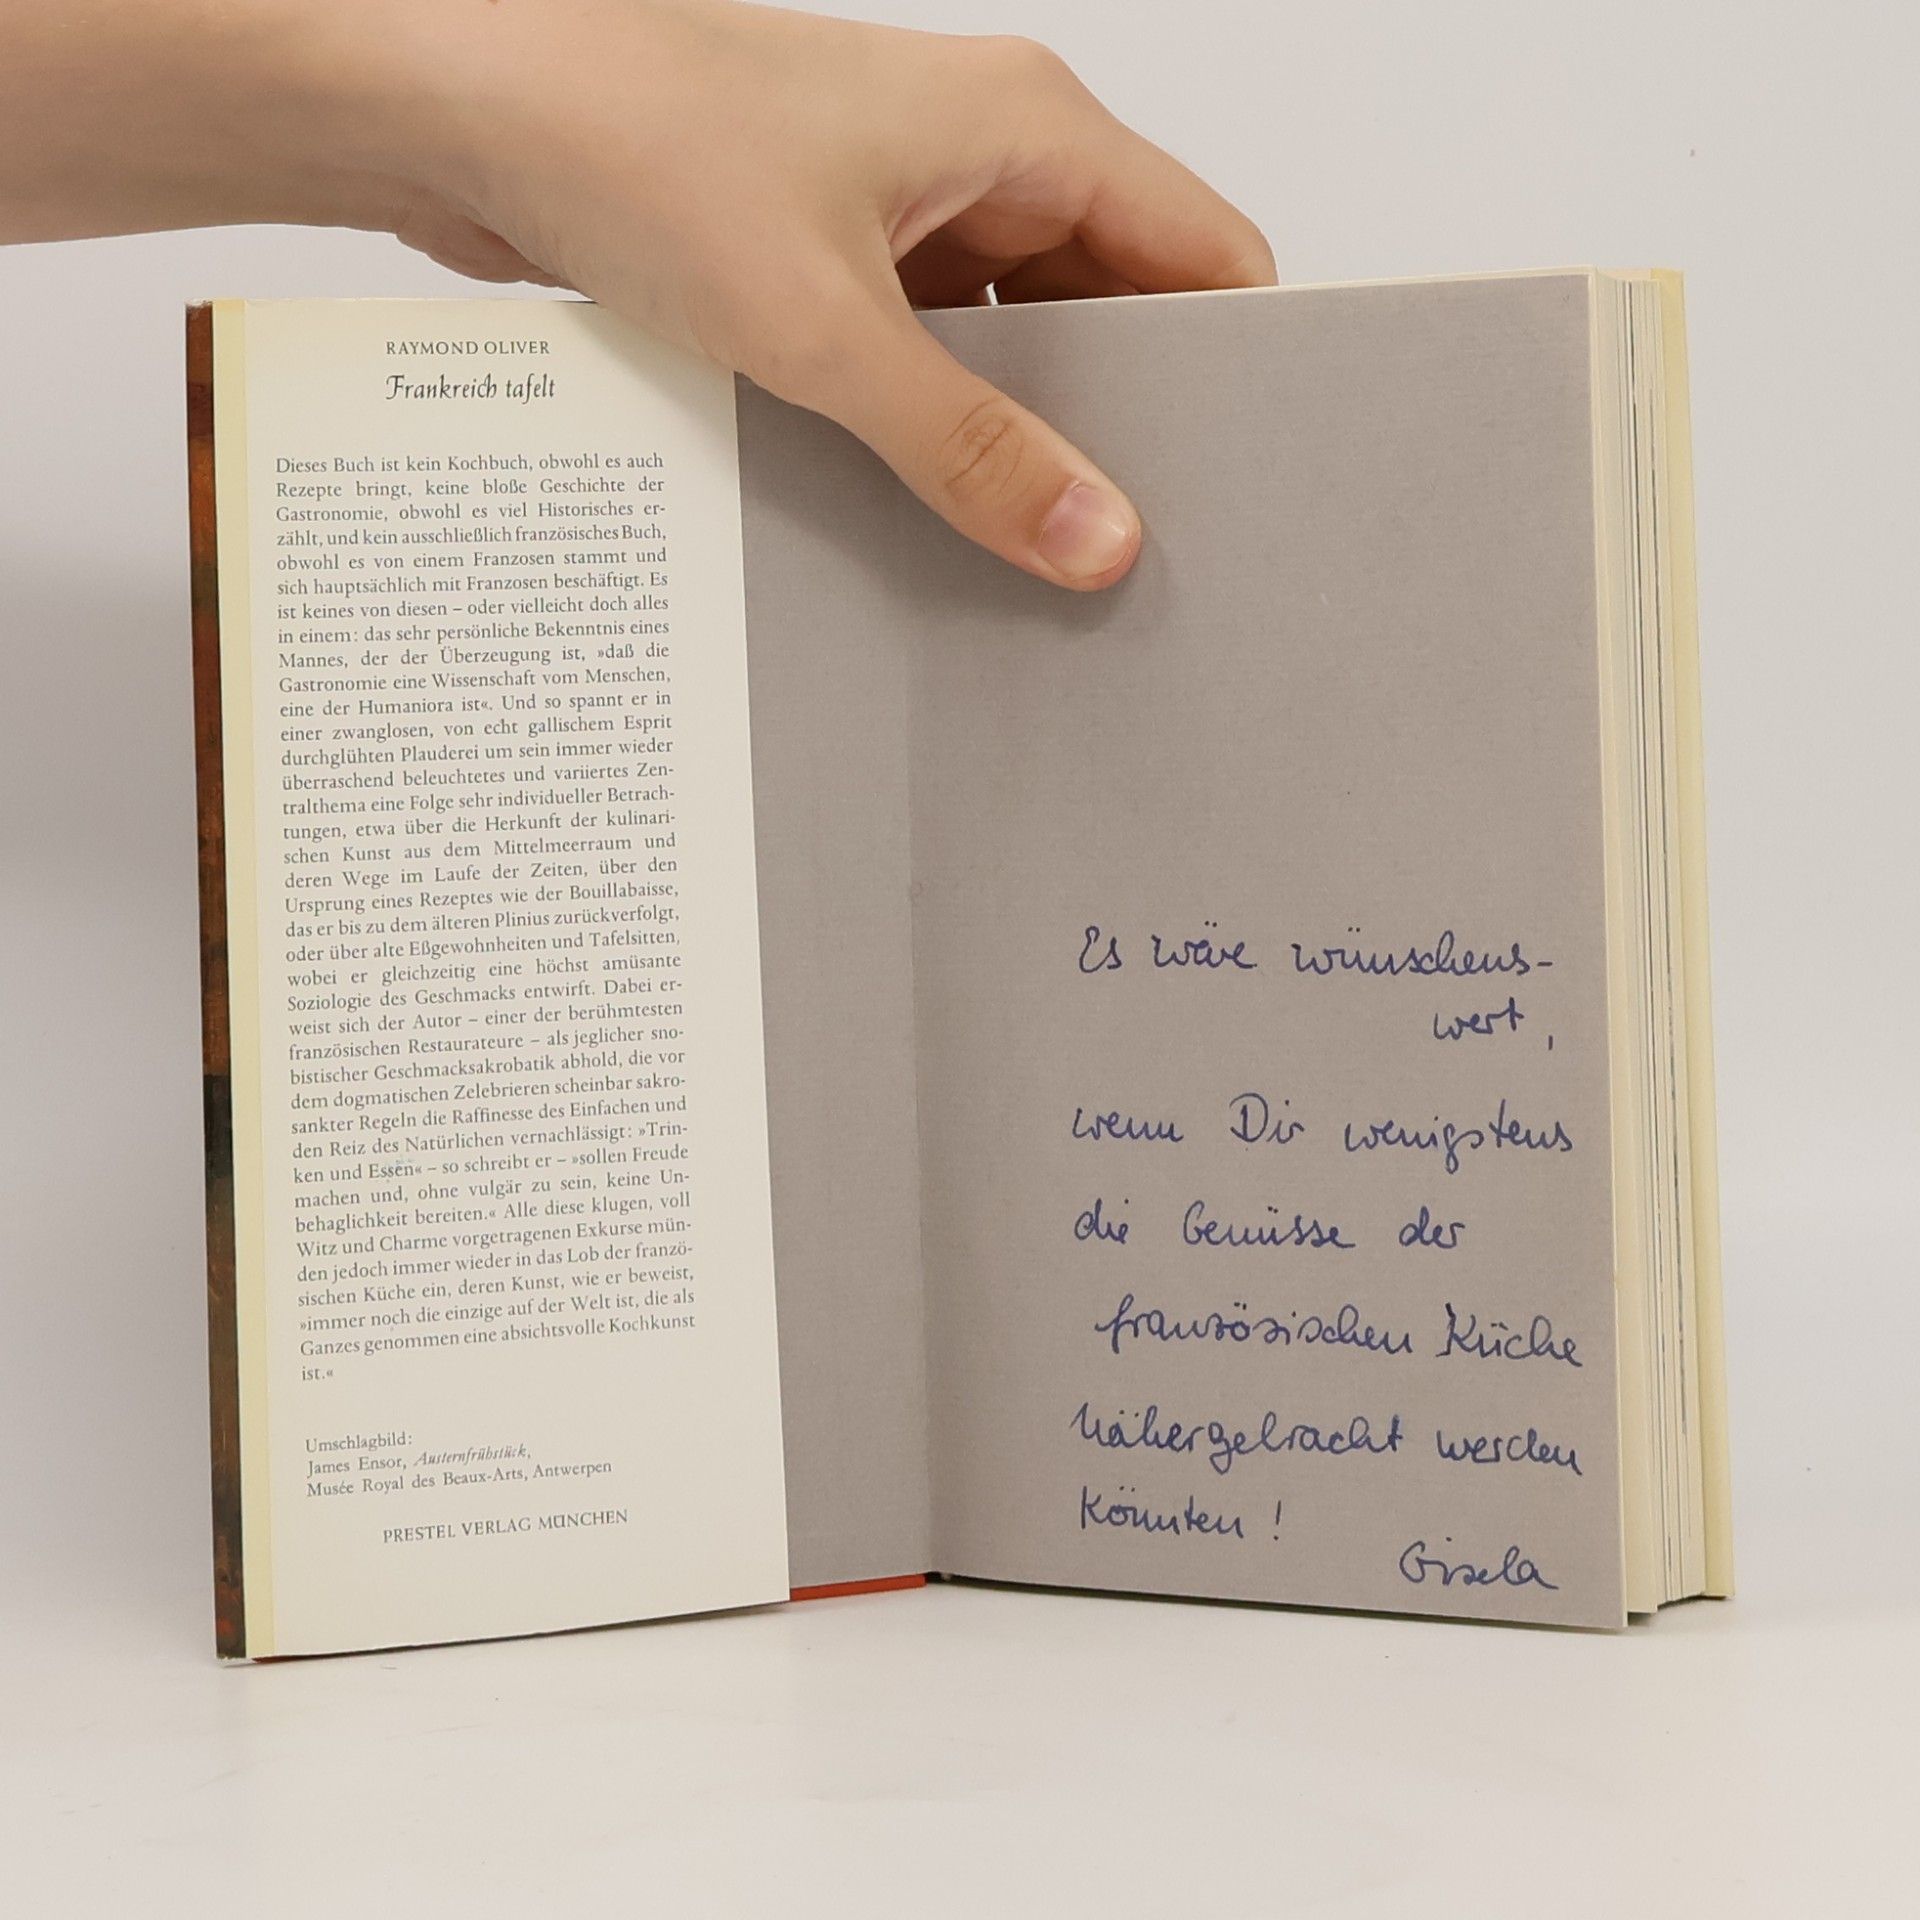 RAYMOND OLIVER
Frankreich tafelt
Dieses Buch ist kein Kochbuch, obwohl es auch
Rezepte bringt, keine bloße Geschichte der
Gastronomie, obwohl es viel Historisches er-
zählt, und kein ausschließlich französisches Buch,
obwohl es von einem Franzosen stammt und
sich hauptsächlich mit Franzosen beschäftigt. Es
ist keines von diesen – oder vielleicht doch alles
in einem: das sehr persönliche Bekenntnis eines
Mannes, der der Überzeugung ist, »daß die
Gastronomie eine Wissenschaft vom Menschen,
eine der Humaniora ist«. Und so spannt er in
einer zwanglosen, von echt gallischem Esprit
durchglühten Plauderei um sein immer wieder
überraschend beleuchtetes und variiertes Zen-
tralthema eine Folge sehr individueller Betrach-
tungen, etwa über die Herkunft der kulinari-
schen Kunst aus dem Mittelmeerraum und
deren Wege im Laufe der Zeiten, über den
Ursprung eines Rezeptes wie der Bouillabaisse,
das er bis zu dem älteren Plinius zurückverfolgt,
oder über alte Eßgewohnheiten und Tafelsitten,
wobei er gleichzeitig eine höchst amüsante
Soziologie des Geschmacks entwirft. Dabei er-
weist sich der Autor – einer der berühmtesten
französischen Restaurateure – als jeglicher sno-
bistischer Geschmacksakrobatik abhold, die vor
dem dogmatischen Zelebrieren scheinbar sakro-
sankter Regeln die Raffinesse des Einfachen und
den Reiz des Natürlichen vernachlässigt: »Trin-
ken und Essen« – so schreibt er – »sollen Freude
machen und, ohne vulgär zu sein, keine Un-
behaglichkeit bereiten.« Alle diese klugen, voll
Witz und Charme vorgetragenen Exkurse mün-
den jedoch immer wieder in das Lob der franzö-
sischen Küche ein, deren Kunst, wie er beweist,
»immer noch die einzige auf der Welt ist, die als
Ganzes genommen eine absichtsvolle Kochkunst
ist.«
Umschlagbild:
James Ensor, Austernfrühstück,
Musée Royal des Beaux-Arts, Antwerpen
PRESTEL VERLAG MÜNCHEN
Es wäre wünschens-
wert,
wenn Dir wenigstens
die Genüsse der
französischen Küche
nähergebracht werden
könnten!
Gisela